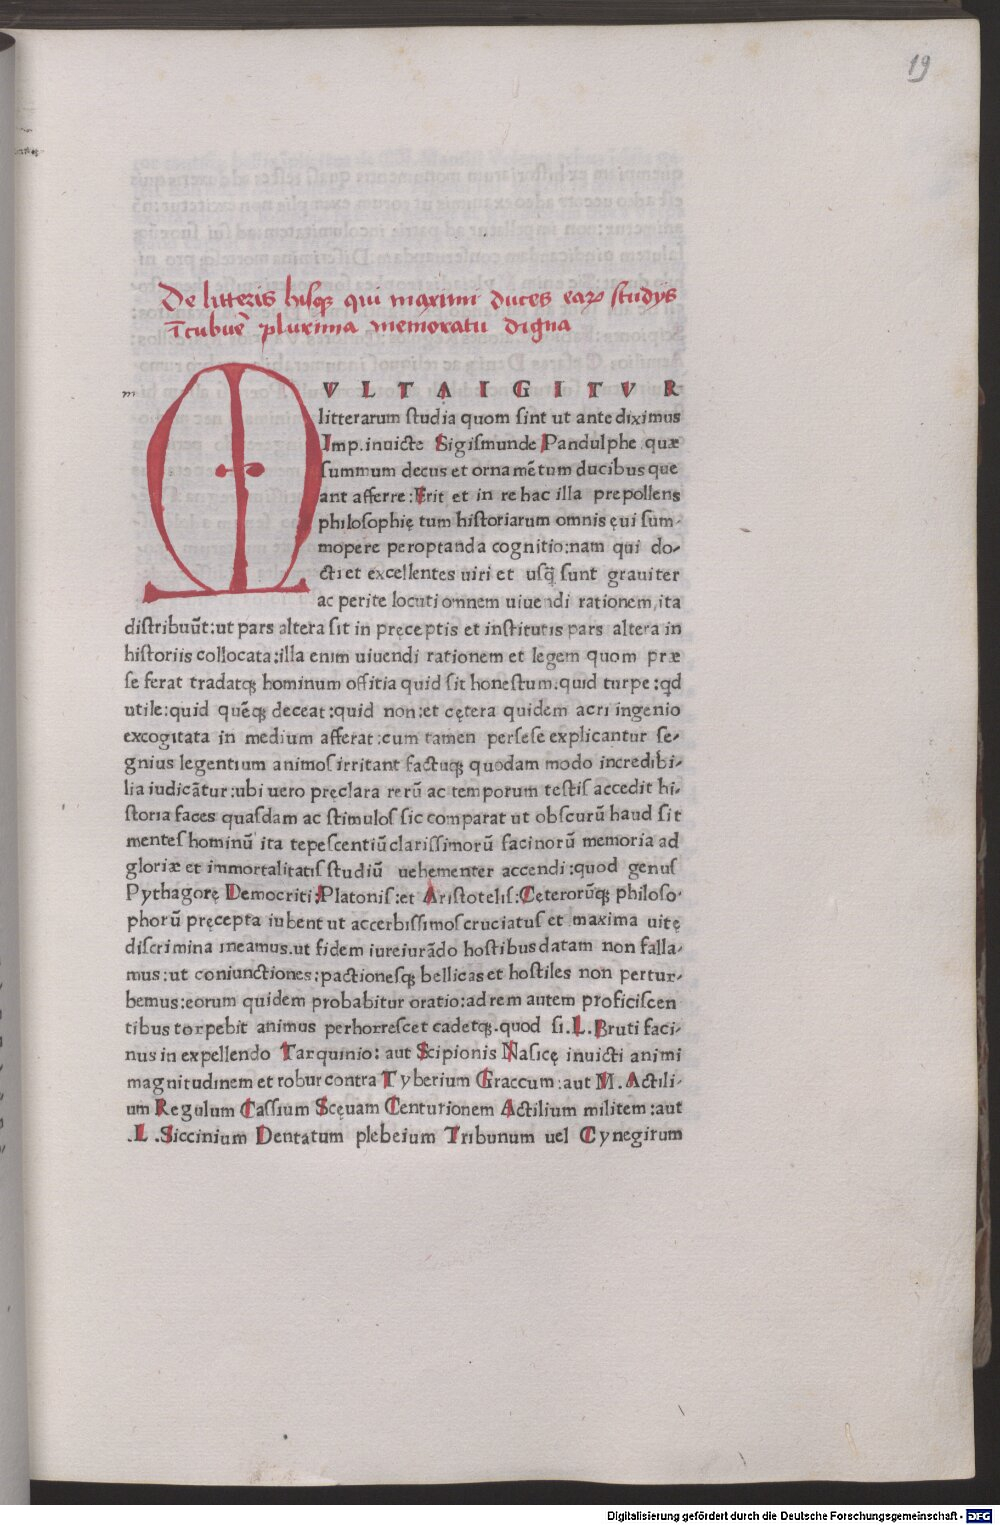 19
De litteris hisqꝫ qui maximi duces eaꝝ studijs
ĩcubuẽ plurima memoratu digna
m
MVLTA IGITVR
litterarum studia quom sint ut ante diximus
Imp. inuicte Sigismunde Pandulphe quæ
summum decus et ornamẽtum ducibus que
ant afferre: Erit et in re hac illa prepollens
philosophię tum historiarum omnis ęui sum-
mopere peroptanda cognitio: nam qui do-
cti et excellentes uiri et usq̃ sunt grauiter
ac perite locuti omnem uiuendi rationem ita
distribuũt: ut pars altera sit in pręceptis et institutis pars altera in
historiis collocata: illa enim uiuendi rationem et legem quom præ
se ferat tradatqꝫ hominum offitia quid sit honestum. quid turpe: qd
utile: quid quẽqꝫ deceat: quid non: et cętera quidem acri ingenio
excogitata in medium afferat: cum tamen persese explicantur se-
gnius legentium animos irritant factuqꝫ quodam modo incredibi-
lia iudicãtur: ubi uero pręclara rerũ ac temporum testis accedit hi-
storia faces quasdam ac stimulos sic comparat ut obscurũ haud sit
mentes hominũ ita tepescentiũ clarissimorũ facinorũ memoria ad
gloriæ et immortalitatis studiũ uehementer accendi: quod genus
Pythagorę Democriti: Platonis: et Aristotelis: Ceterorũqꝫ philoso-
phorũ pręcepta iubent ut accerbissimos cruciatus et maxima uitę
discrimina ineamus. ut fidem iureiurãdo hostibus datam non falla-
mus: ut coniunctiones: pactionesqꝫ bellicas et hostiles non pertur-
bemus: eorum quidem probabitur oratio: ad rem autem proficiscen
tibus torpebit animus perhorrescet cadetqꝫ. quod si .L. Bruti faci-
nus in expellendo Tarquinio: aut Scipionis Nasicę inuicti animi
magnitudinem et robur contra Tyberium Graccum: aut M. Actili-
um Regulum Cassium Scęuam Centurionem Actilium militem: aut
.L. Siccinium Dentatum plebeium Tribunum uel Cynegirum
Digitalisierung gefördert durch die Deutsche Forschungsgemeinschaft - DFG